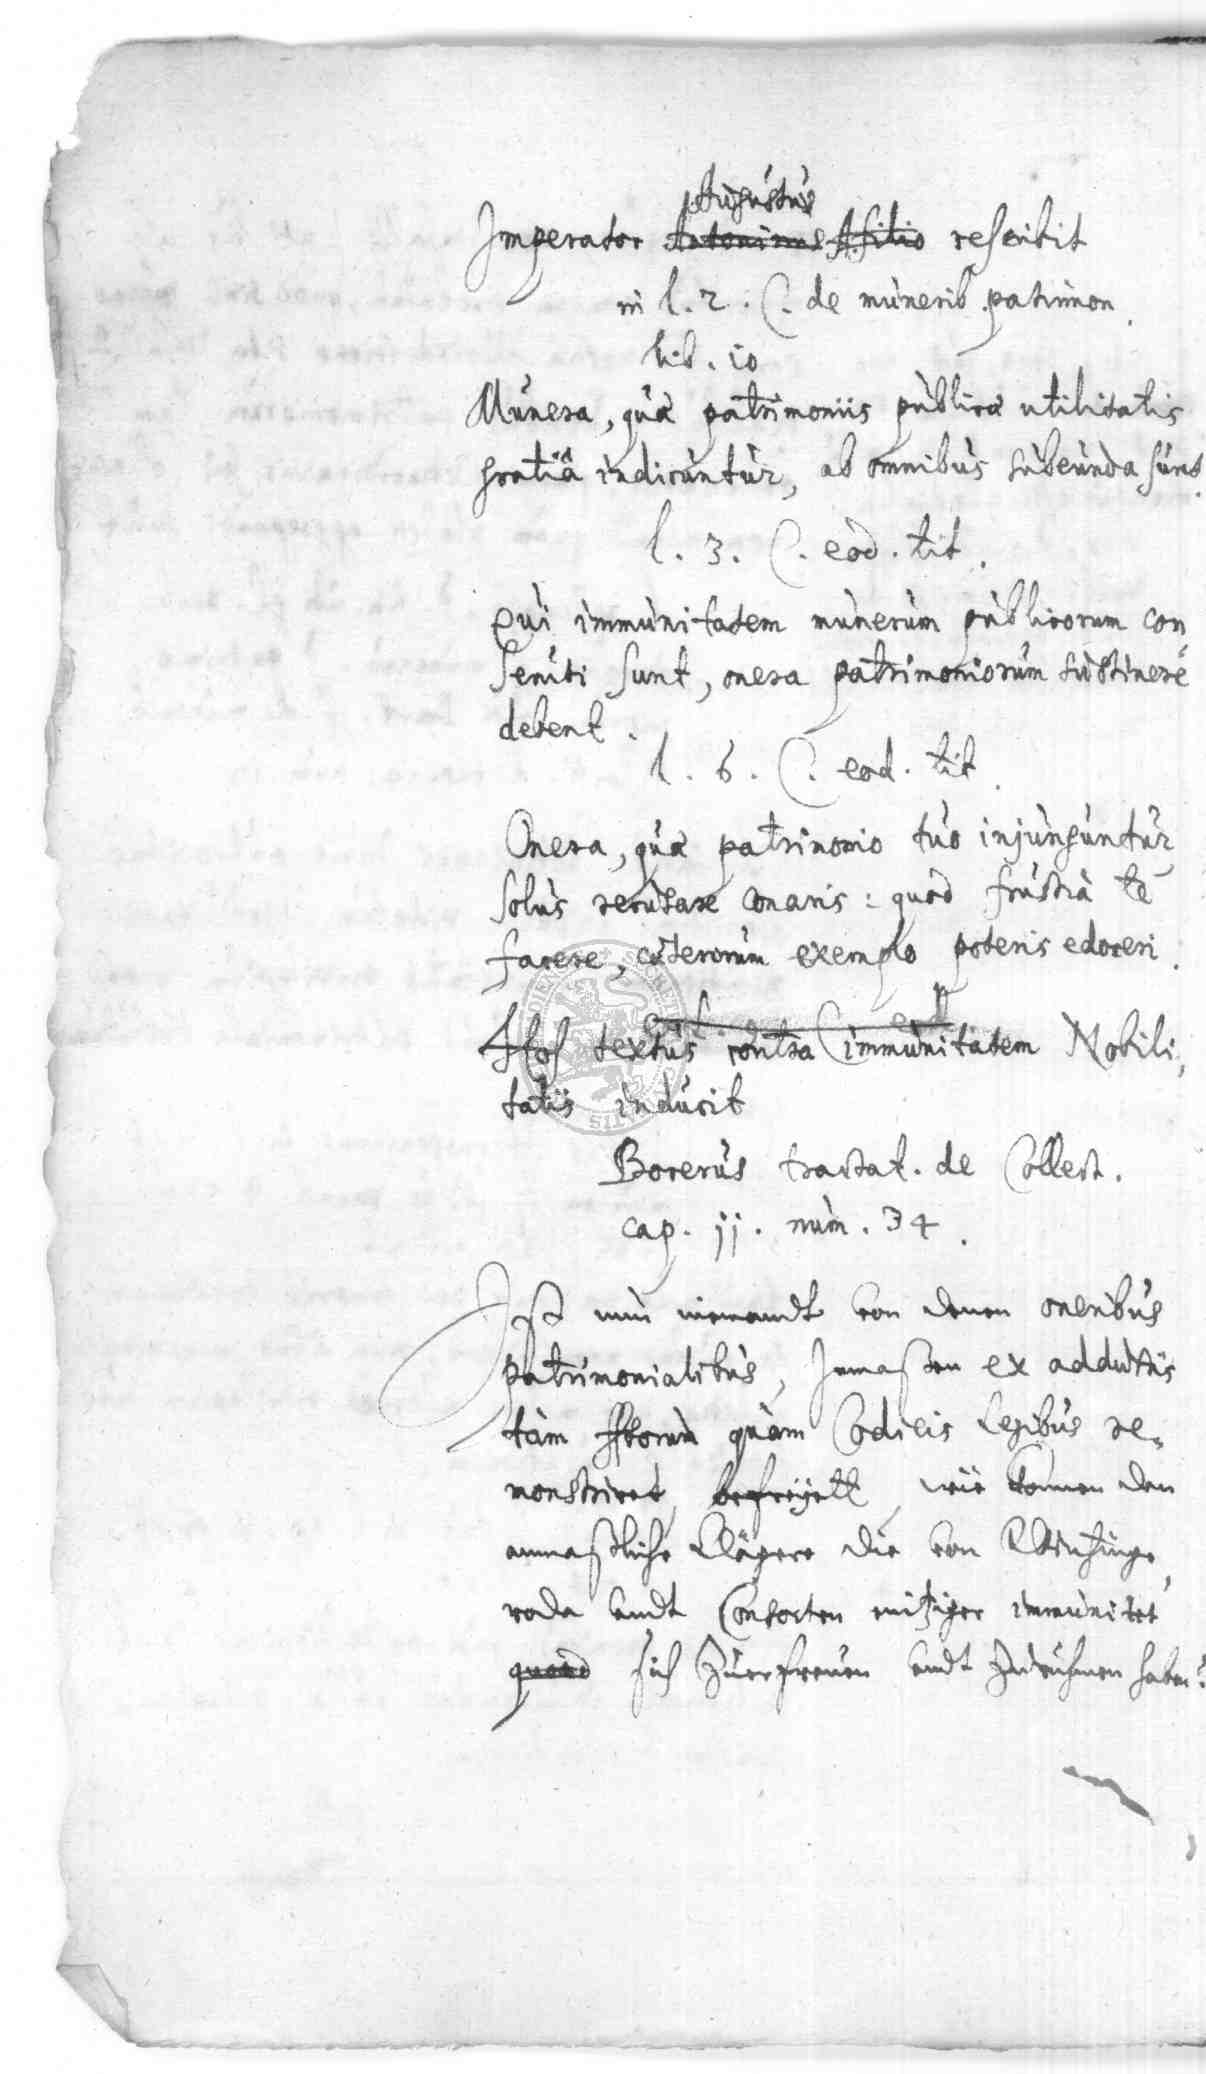 Augustus
Imperator Antoninus rescribit
in l. 2. C. de munerib. patrimon.
lib. 10
Munera, quæ patrimoniis publicæ utilitatis
gratiâ indicuntur, ab omnibus subeunda sunt.
l. 3. C. eod. tit.
Qui immunitatem munerum publicorum con
secuti sunt, onera patrimoniorum sustinere
debent.
l. 6. C. eod. tit.
Onera, quæ patrimonio tuo injunguntur
solus recusare conaris: quod frustrà te
facere, cæterorum exemplo poteris edoceri.
Hos textus contra immunitatem Nobili,
tatis inducit
Bocerus tractat. de Collect.
cap. jj. num. 34.
Ist nun niemandt von denen oneribus
patrimonialibus, Inmaßen ex adductis
tàm fftorum quàm Codicis Legibus re-
monstriret, befreyett, wie können den
anmaßliche Klägere die von Wintzinge,
roda undt Consorten einziger immunitet
quoad sich Zuerfreuen undt Zuruhmen haben?